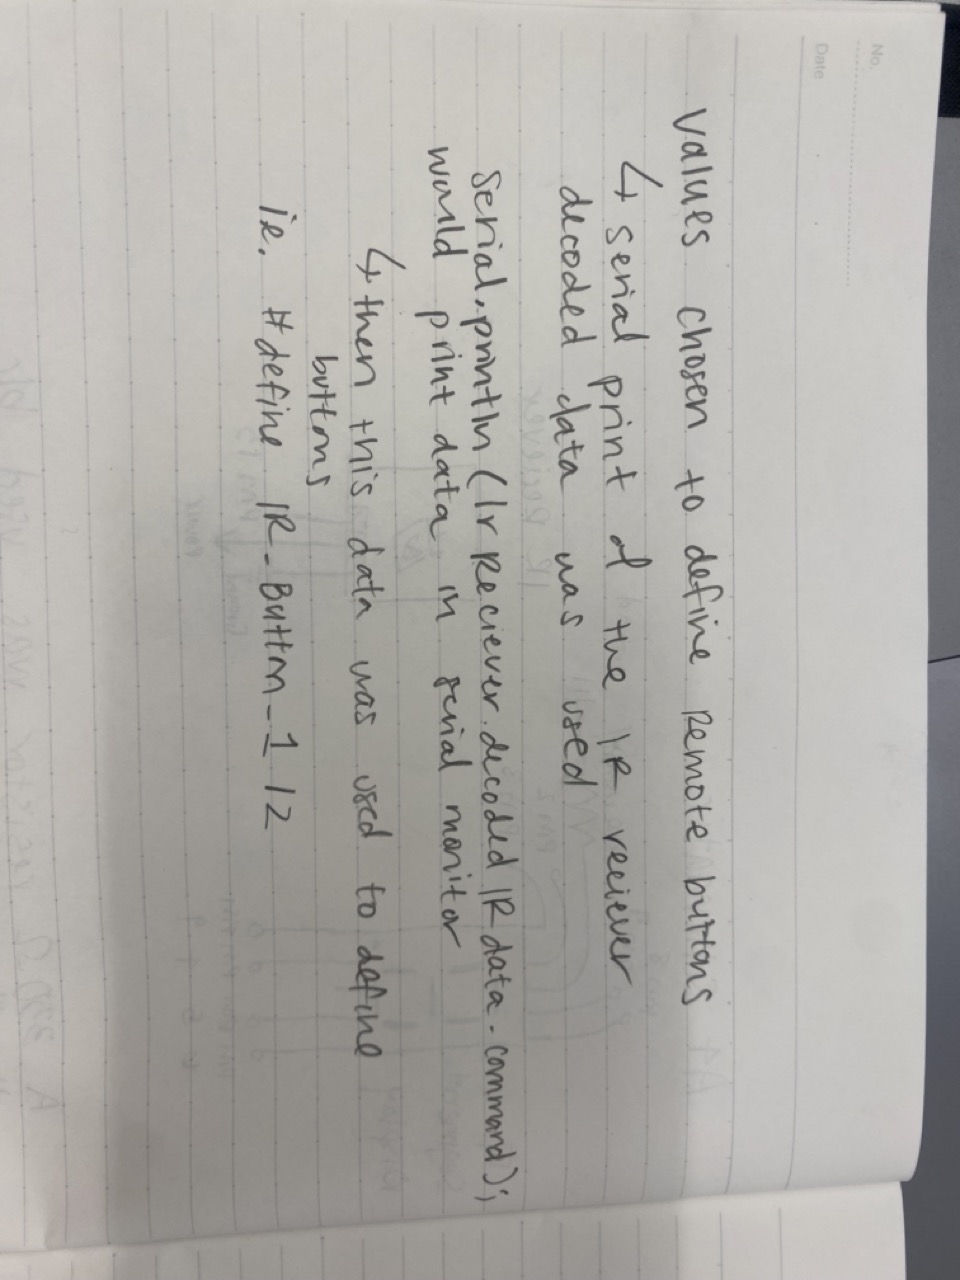 No.
Date
Values chosen to define Remote buttons
↳ serial print of the IR reciever
decoded data was used
Serial.println(IrReciever.decodedIRdata.command);
would print data in serial monitor
↳ then this data was used to define
buttons
i.e. #define IR_Button_1 12